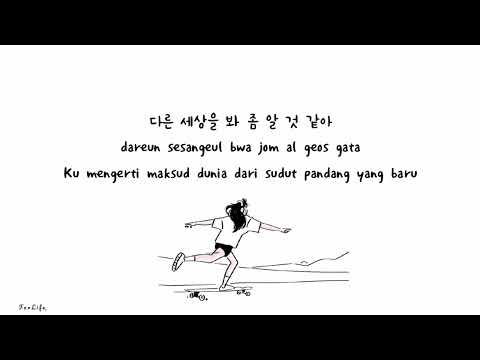 다른 세상을 봐 좀 알 것 같아
dareun sesangeul bwa jom al geos gata
Ku mengerti maksud dunia dari sudut pandang yang baru